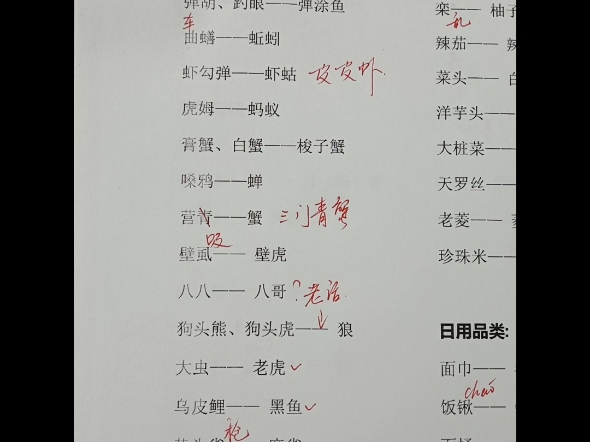 弹胡、趵眼——弹涂鱼
车
曲蟮——蚯蚓
虾勾弹——虾蛄 皮皮虾
虎姆——蚂蚁
膏蟹、白蟹——梭子蟹
嗓鸦——蝉
营青——蟹 三门青蟹
吸
壁虱—— 壁虎
八八—— 八哥?老话
狗头熊、狗头虎—— 狼
大虫—— 老虎✓
乌皮鲤—— 黑鱼✓
枪
栾—— 柚子
乱
辣茄—— 辣
菜头—— 白
洋芋头——
大桩菜——
天罗丝——
老菱——
珍珠米——
日用品类:
面巾——
chao
饭锹——